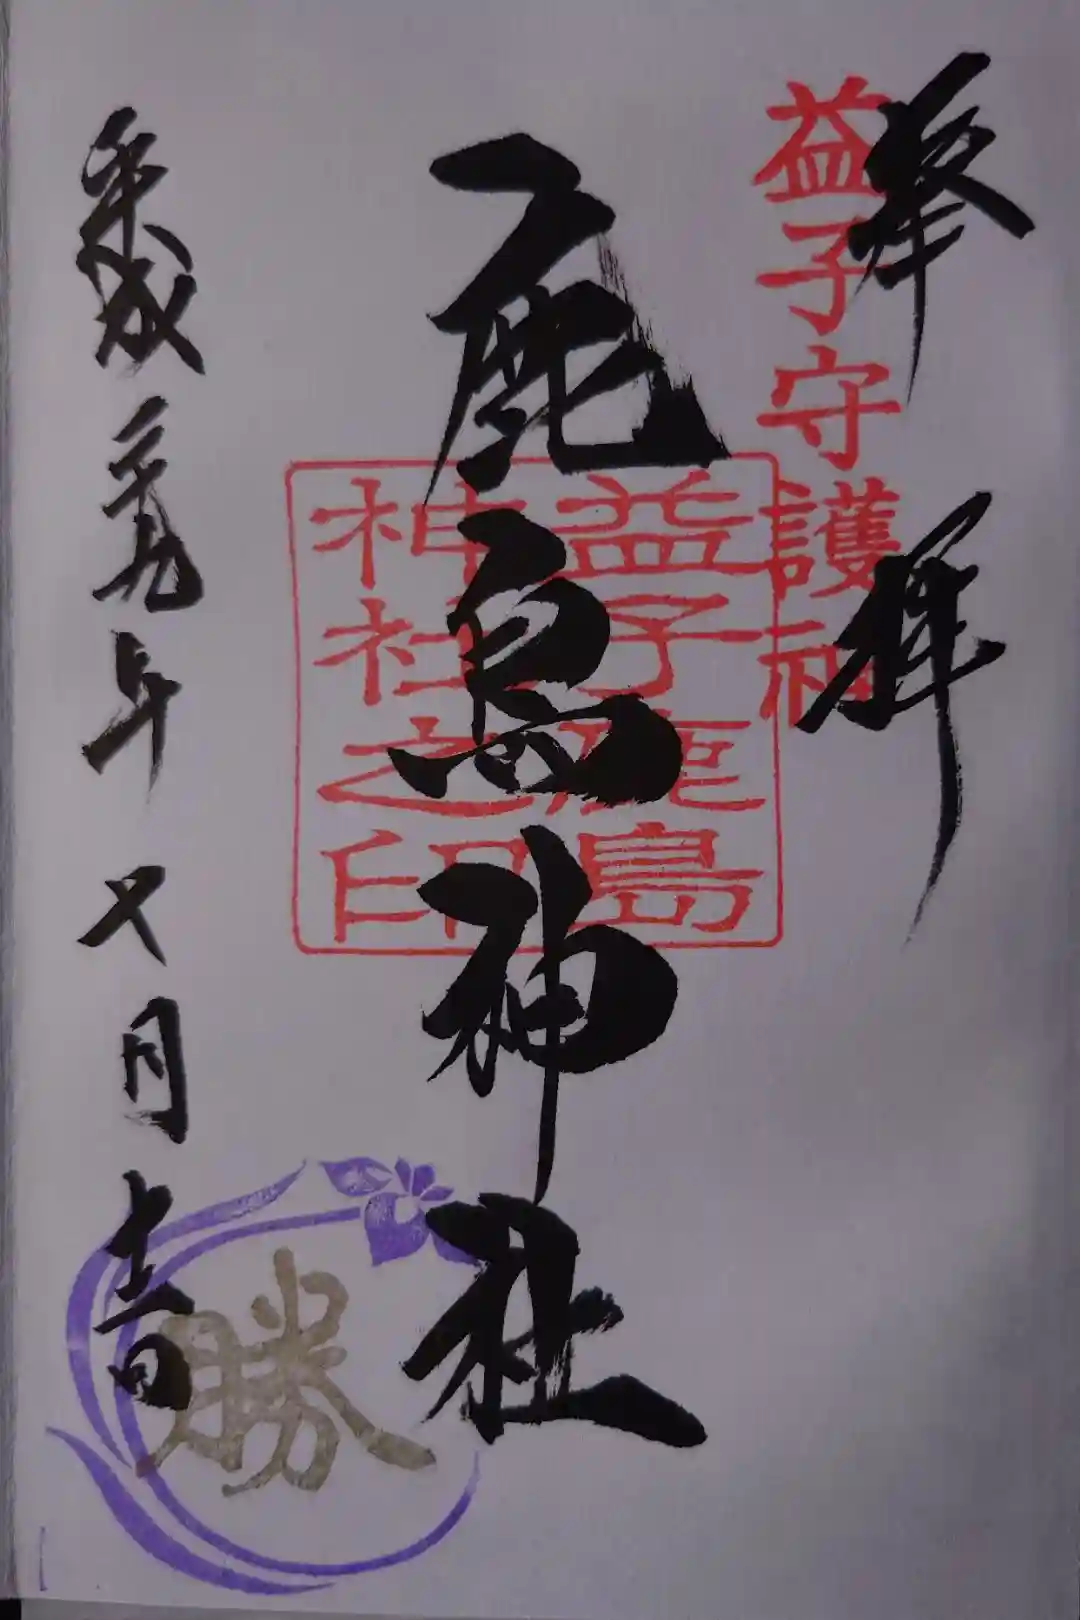 奉拝
益子守護神
鹿島神社
益子鹿島
神社之印
平成二十九年
七月十二日
勝